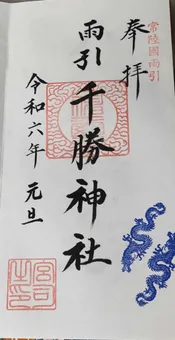 常陸國雨引
奉拝
雨引
千勝神社
令和六年 元旦
宮司之印